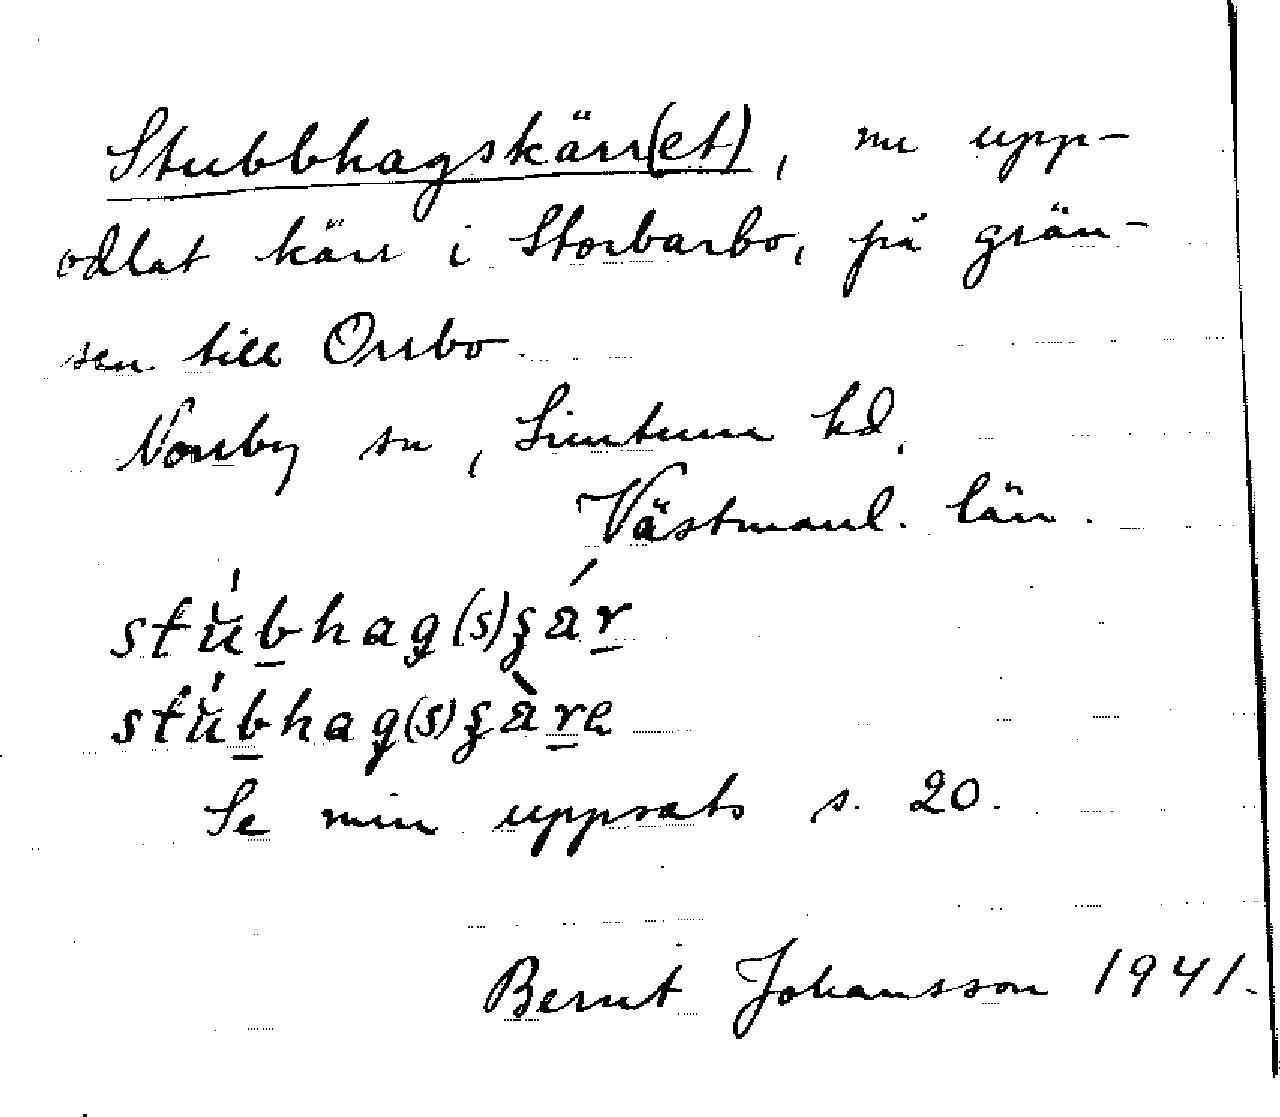 Stubbhagskärr(et), nu upp-
odlat kärr i Storbarbo, på grän-
sen till Orrbo
Norrby sn, Simtuna hd,
Västmanl. län.
stu̍bhag(s)ʂár
stu̍bhag(s)ʂàre
Se min uppsats s. 20.
Bernt Johansson 1941.